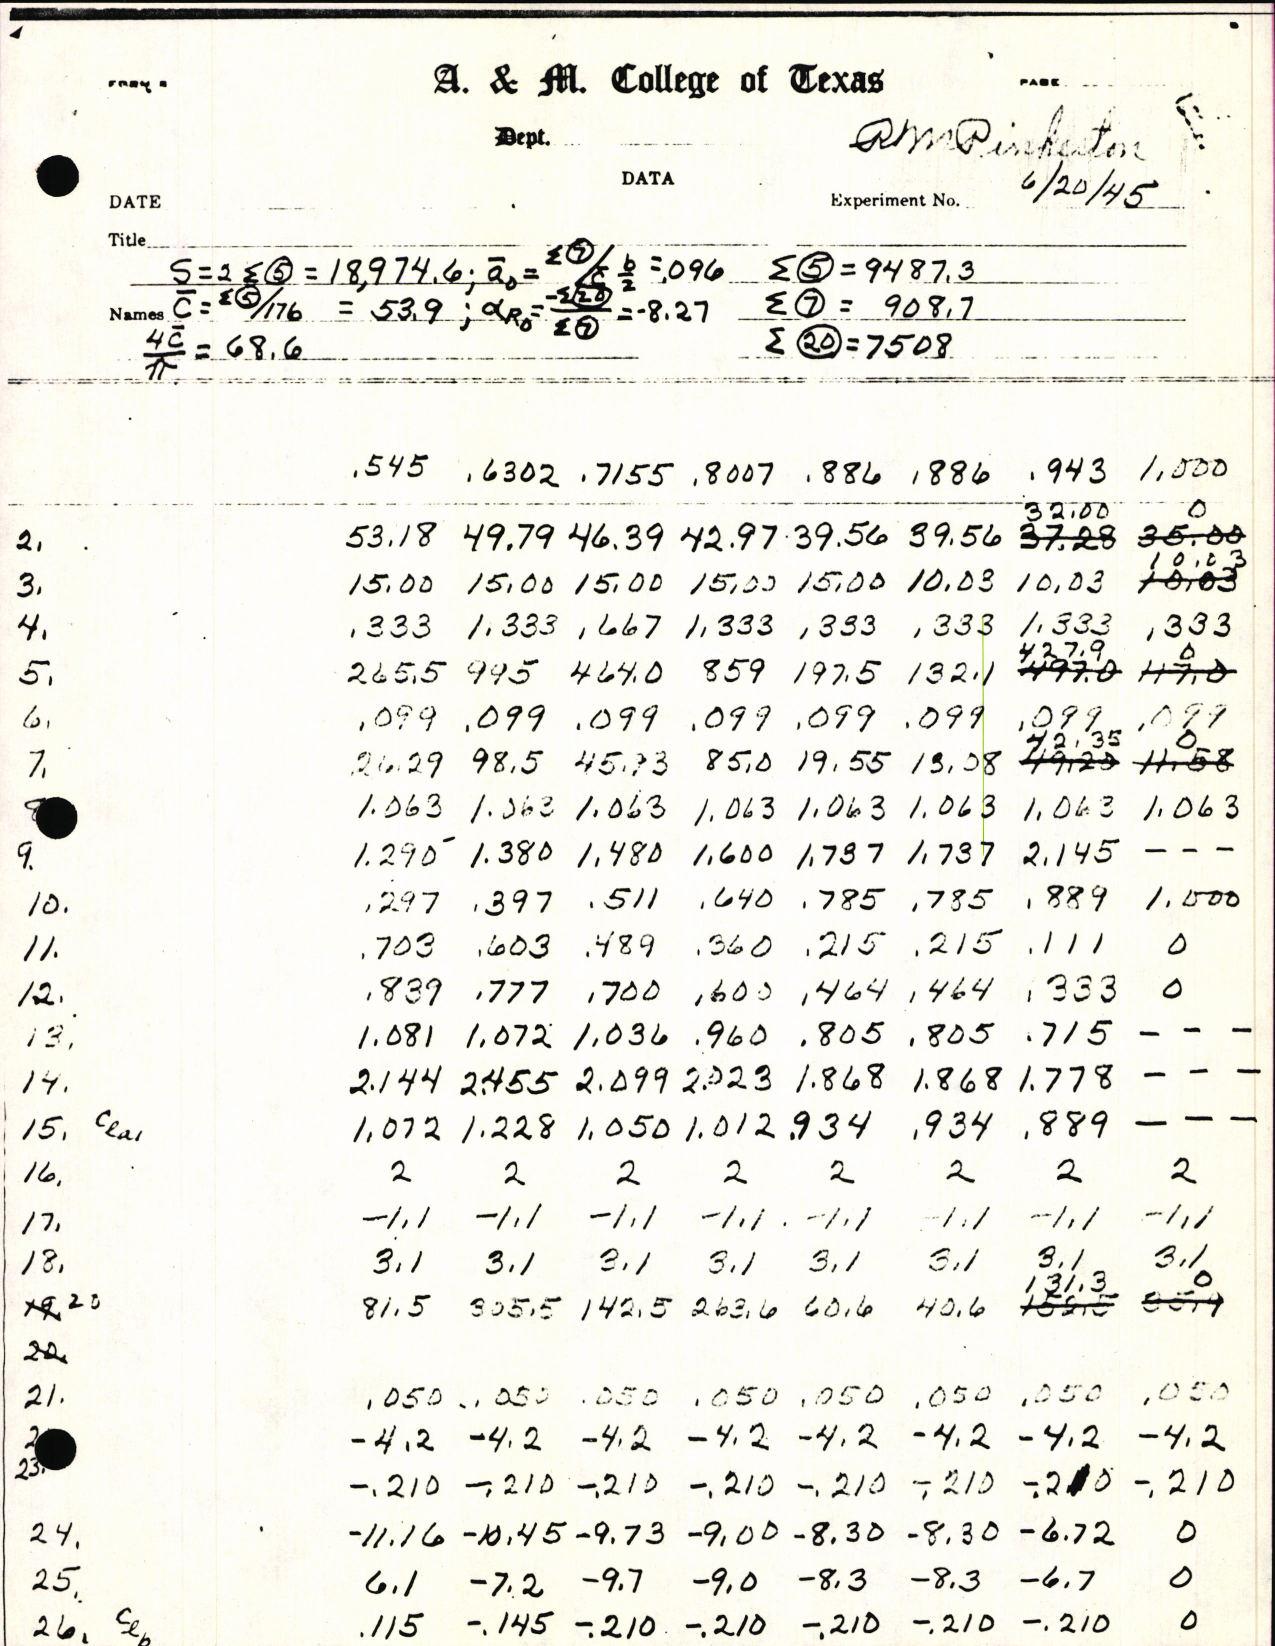 A. & M. College of Texas
PAGE
Dept.
RM Pinkerton
DATA
6/20/45
DATE
Experiment No.
Title
S = 2 Σ⑤ = 18,974.6; a̅₀ = Σ⑦/c̅ b/2 = .096 Σ⑤ = 9487.3
Names C̅ = Σ⑤/176 = 53.9 ; α_R₀ = -Σ⑳/Σ⑦ = -8.27 Σ⑦ = 908.7
4C̅/π = 68.6 Σ⑳ = 7508
.545 .6302 .7155 .8007 .886 .886 .943 1.000
32.00 0
2. 53.18 49.79 46.39 42.97 39.56 39.56 37.28 35.00
10.03
3. 15.00 15.00 15.00 15.00 15.00 10.03 10.03 10.03
4. .333 1.333 .667 1.333 .333 .333 1.333 .333
427.9 0
5. 265.5 995 464.0 859 197.5 132.1 497.0 117.0
6. .099 .099 .099 .099 .099 .099 .099 .099
42.35 0
7. 26.29 98.5 45.93 85.0 19.55 13.08 49.20 11.58
8 1.063 1.063 1.063 1.063 1.063 1.063 1.063 1.063
9. 1.290 1.380 1.480 1.600 1.737 1.737 2.145 - - -
10. .297 .397 .511 .640 .785 .785 .889 1.000
11. .703 .603 .489 .360 .215 .215 .111 0
12. .839 .777 .700 .600 .464 .464 .333 0
13. 1.081 1.072 1.036 .960 .805 .805 .715 - - -
14. 2.144 2.455 2.099 2.023 1.868 1.868 1.778 - - -
15. c_la1 1.072 1.228 1.050 1.012 .934 .934 .889 - - -
16. 2 2 2 2 2 2 2 2
17. -1.1 -1.1 -1.1 -1.1 -1.1 -1.1 -1.1 -1.1
18. 3.1 3.1 3.1 3.1 3.1 3.1 3.1 3.1
131.3 0
19. 20 81.5 305.5 142.5 263.6 60.6 40.6
20.
21. .050 .050 .050 .050 .050 .050 .050 .050
2 -4.2 -4.2 -4.2 -4.2 -4.2 -4.2 -4.2 -4.2
23. -.210 -.210 -.210 -.210 -.210 -.210 -.210 -.210
24. -11.16 -10.45 -9.73 -9.00 -8.30 -8.30 -6.72 0
25. 6.1 -7.2 -9.7 -9.0 -8.3 -8.3 -6.7 0
26. c_lb .115 -.145 -.210 -.210 -.210 -.210 -.210 0